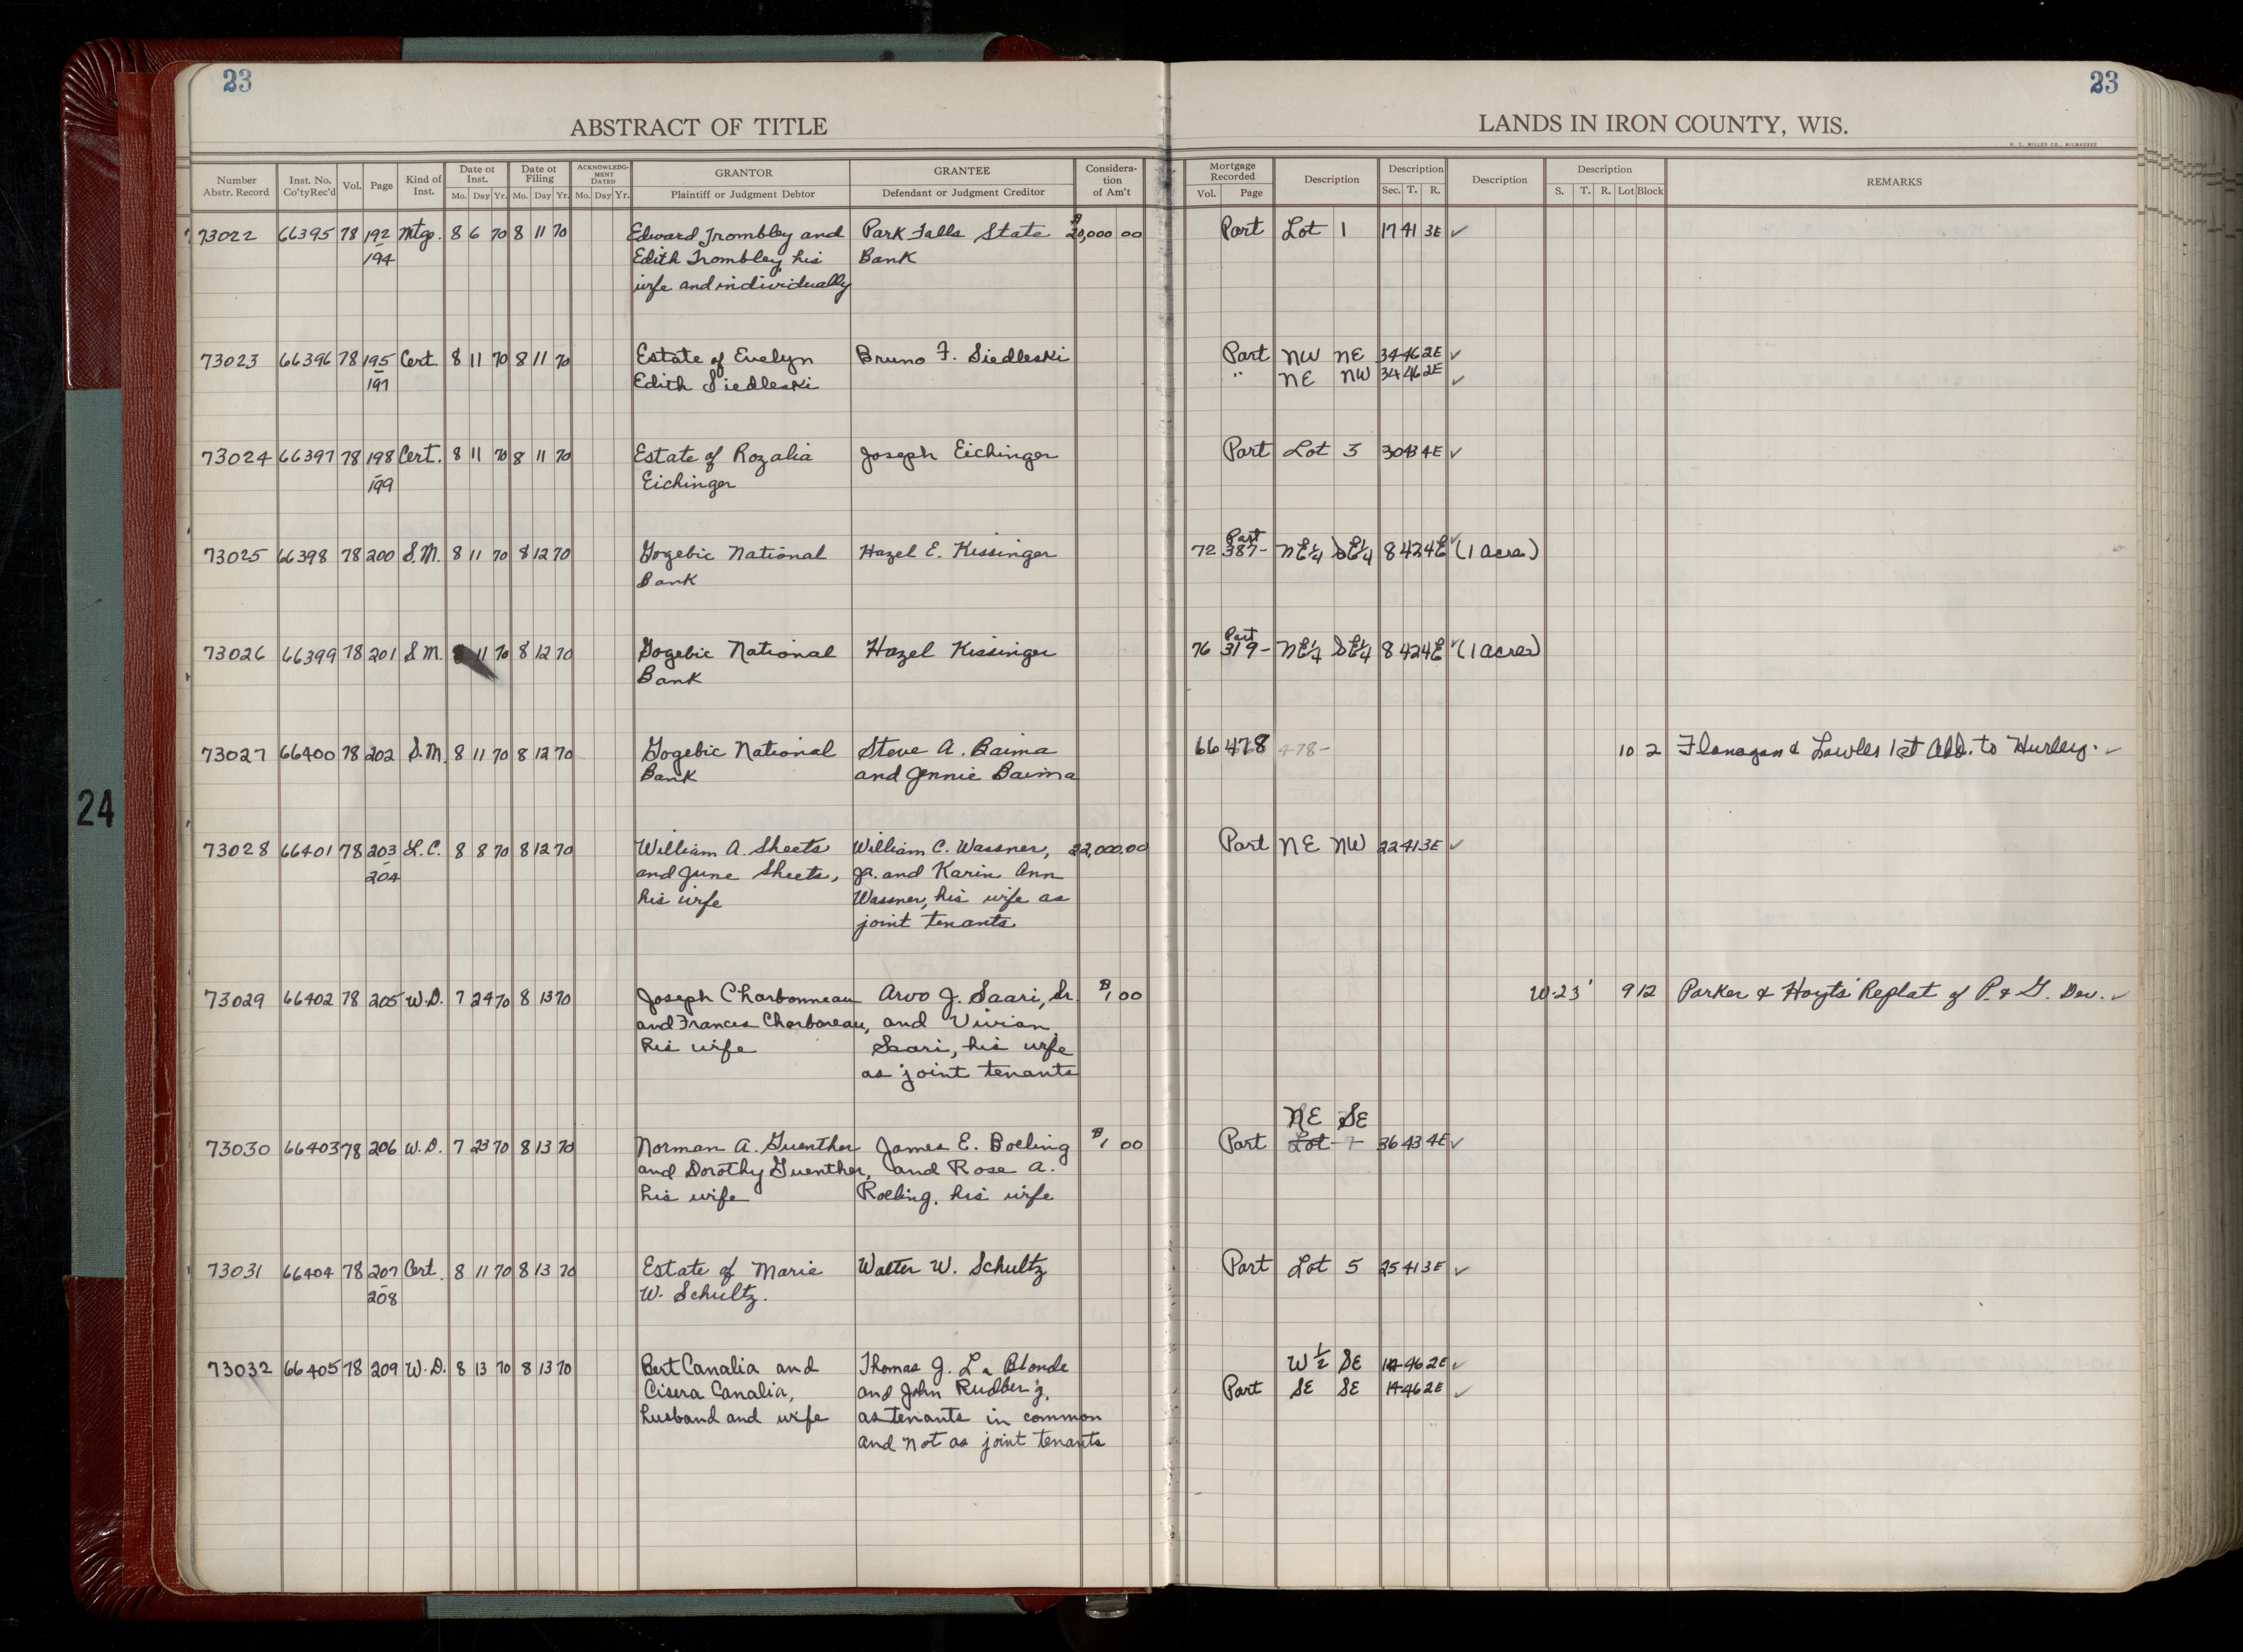 23
23
ABSTRACT OF TITLE
LANDS IN IRON COUNTY, WIS.
H. C. MILLER CO., MILWAUKEE
Number Abstr. Record Inst. No. Co'ty Rec'd Vol. Page Kind of Inst. Date of Inst. Mo. Day Yr. Date of Filing Mo. Day Yr. ACKNOWLEDGMENT DATED Mo. Day Yr. GRANTOR Plaintiff or Judgment Debtor GRANTEE Defendant or Judgment Creditor Consideration of Am't Mortgage Recorded Vol. Page Description Description Sec. T. R. Description Description S. T. R. Lot Block REMARKS
73022 66395 78 192 Mtg. 8 6 70 8 11 70 Edward Trombley and Park Falls State $20,000 00 Part Lot 1 17 41 3E ✓
194 Edith Trombley, his Bank
wife and individually
73023 66396 78 195 Cert 8 11 70 8 11 70 Estate of Evelyn Bruno F. Siedleski Part NW NE 34 46 2E ✓
197 Edith Siedleski " NE NW 34 46 2E ✓
73024 66397 78 198 Cert. 8 11 70 8 11 70 Estate of Rozalia Joseph Eichinger Part Lot 3 30 43 4E ✓
199 Eichinger
Part
73025 66398 78 200 S.M. 8 11 70 8 12 70 Gogebic National Hazel E. Kissinger 72 387- NE¼ SE¼ 8 42 4E ✓ (1 acre)
Bank
Part
73026 66399 78 201 S.M. 8 11 70 8 12 70 Gogebic National Hazel Kissinger 76 319- NE¼ SE¼ 8 42 4E ✓ (1 acres)
Bank
73027 66400 78 202 S.M. 8 11 70 8 12 70 Gogebic National Steve A. Baima 66 478 478- 10 2 Flanagan & Lawles 1st Add. to Hurley. ✓
Bank and Jennie Baima
73028 66401 78 203 L.C. 8 8 70 8 12 70 William A. Sheets William C. Wassner, 22,000.00 Part NE NW 22 41 3E ✓
204 and June Sheets, Jr. and Karin Ann
his wife Wassner, his wife as
joint tenants
73029 66402 78 205 W.D. 7 24 70 8 13 70 Joseph Charbonneau Arvo J. Saari, Sr. $1 00 W-23' 9 12 Parker & Hoyts' Replat of P. & G. Dev. ✓
and Frances Charboneau, and Vivian
his wife Saari, his wife
as joint tenants
NE SE
73030 66403 78 206 W.D. 7 23 70 8 13 70 Norman A. Guenther James E. Boeling $1 00 Part Lot 7 36 43 4E ✓
and Dorothy Guenther, and Rose A.
his wife Roeling, his wife
73031 66404 78 207 Cert. 8 11 70 8 13 70 Estate of Marie Walter W. Schultz Part Lot 5 25 41 3E ✓
208 W. Schultz.
73032 66405 78 209 W.D. 8 13 70 8 13 70 Bert Canalia and Thomas J. La Blonde W½ SE 14 46 2E ✓
Cisera Canalia, and John Rudberg, Part SE SE 14 46 2E ✓
husband and wife as tenants in common
and not as joint tenants
24